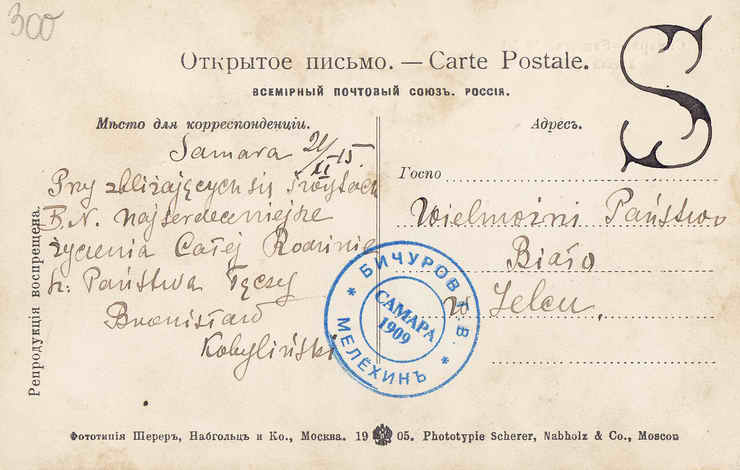 300
Открытое письмо. — Carte Postale.
ВСЕМІРНЫЙ ПОЧТОВЫЙ СОЮЗЪ. РОССІЯ.
S
Мѣсто для корреспонденціи.
Адресъ.
Samara 21/XI 15.
Przy zbliżających się Świętach
B.N. najserdeczniejsze
życzenia Całej Rodzinie
Państwa łączy
Bronisław
Kobyliński
Госпо
Wielmożni Państwo
Biało
w Jelcu.
БИЧУРОВ Г.В.
САМАРА
1909
МЕЛЁХИНЪ
Репродукція воспрещена.
Фототипія Шереръ, Набгольцъ и Ко., Москва. 19 05. Phototypie Scherer, Nabholz & Co., Moscou